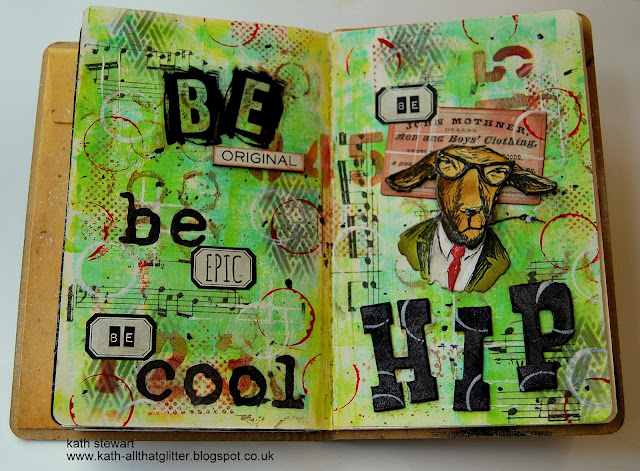 BE
ORIGINAL
be
EPIC
BE
cool
BE
JOHN MOTHNER,
DEALER
Men and Boys' Clothing,
HIP
kath stewart
www.kath-allthatglitter.blogspot.co.uk